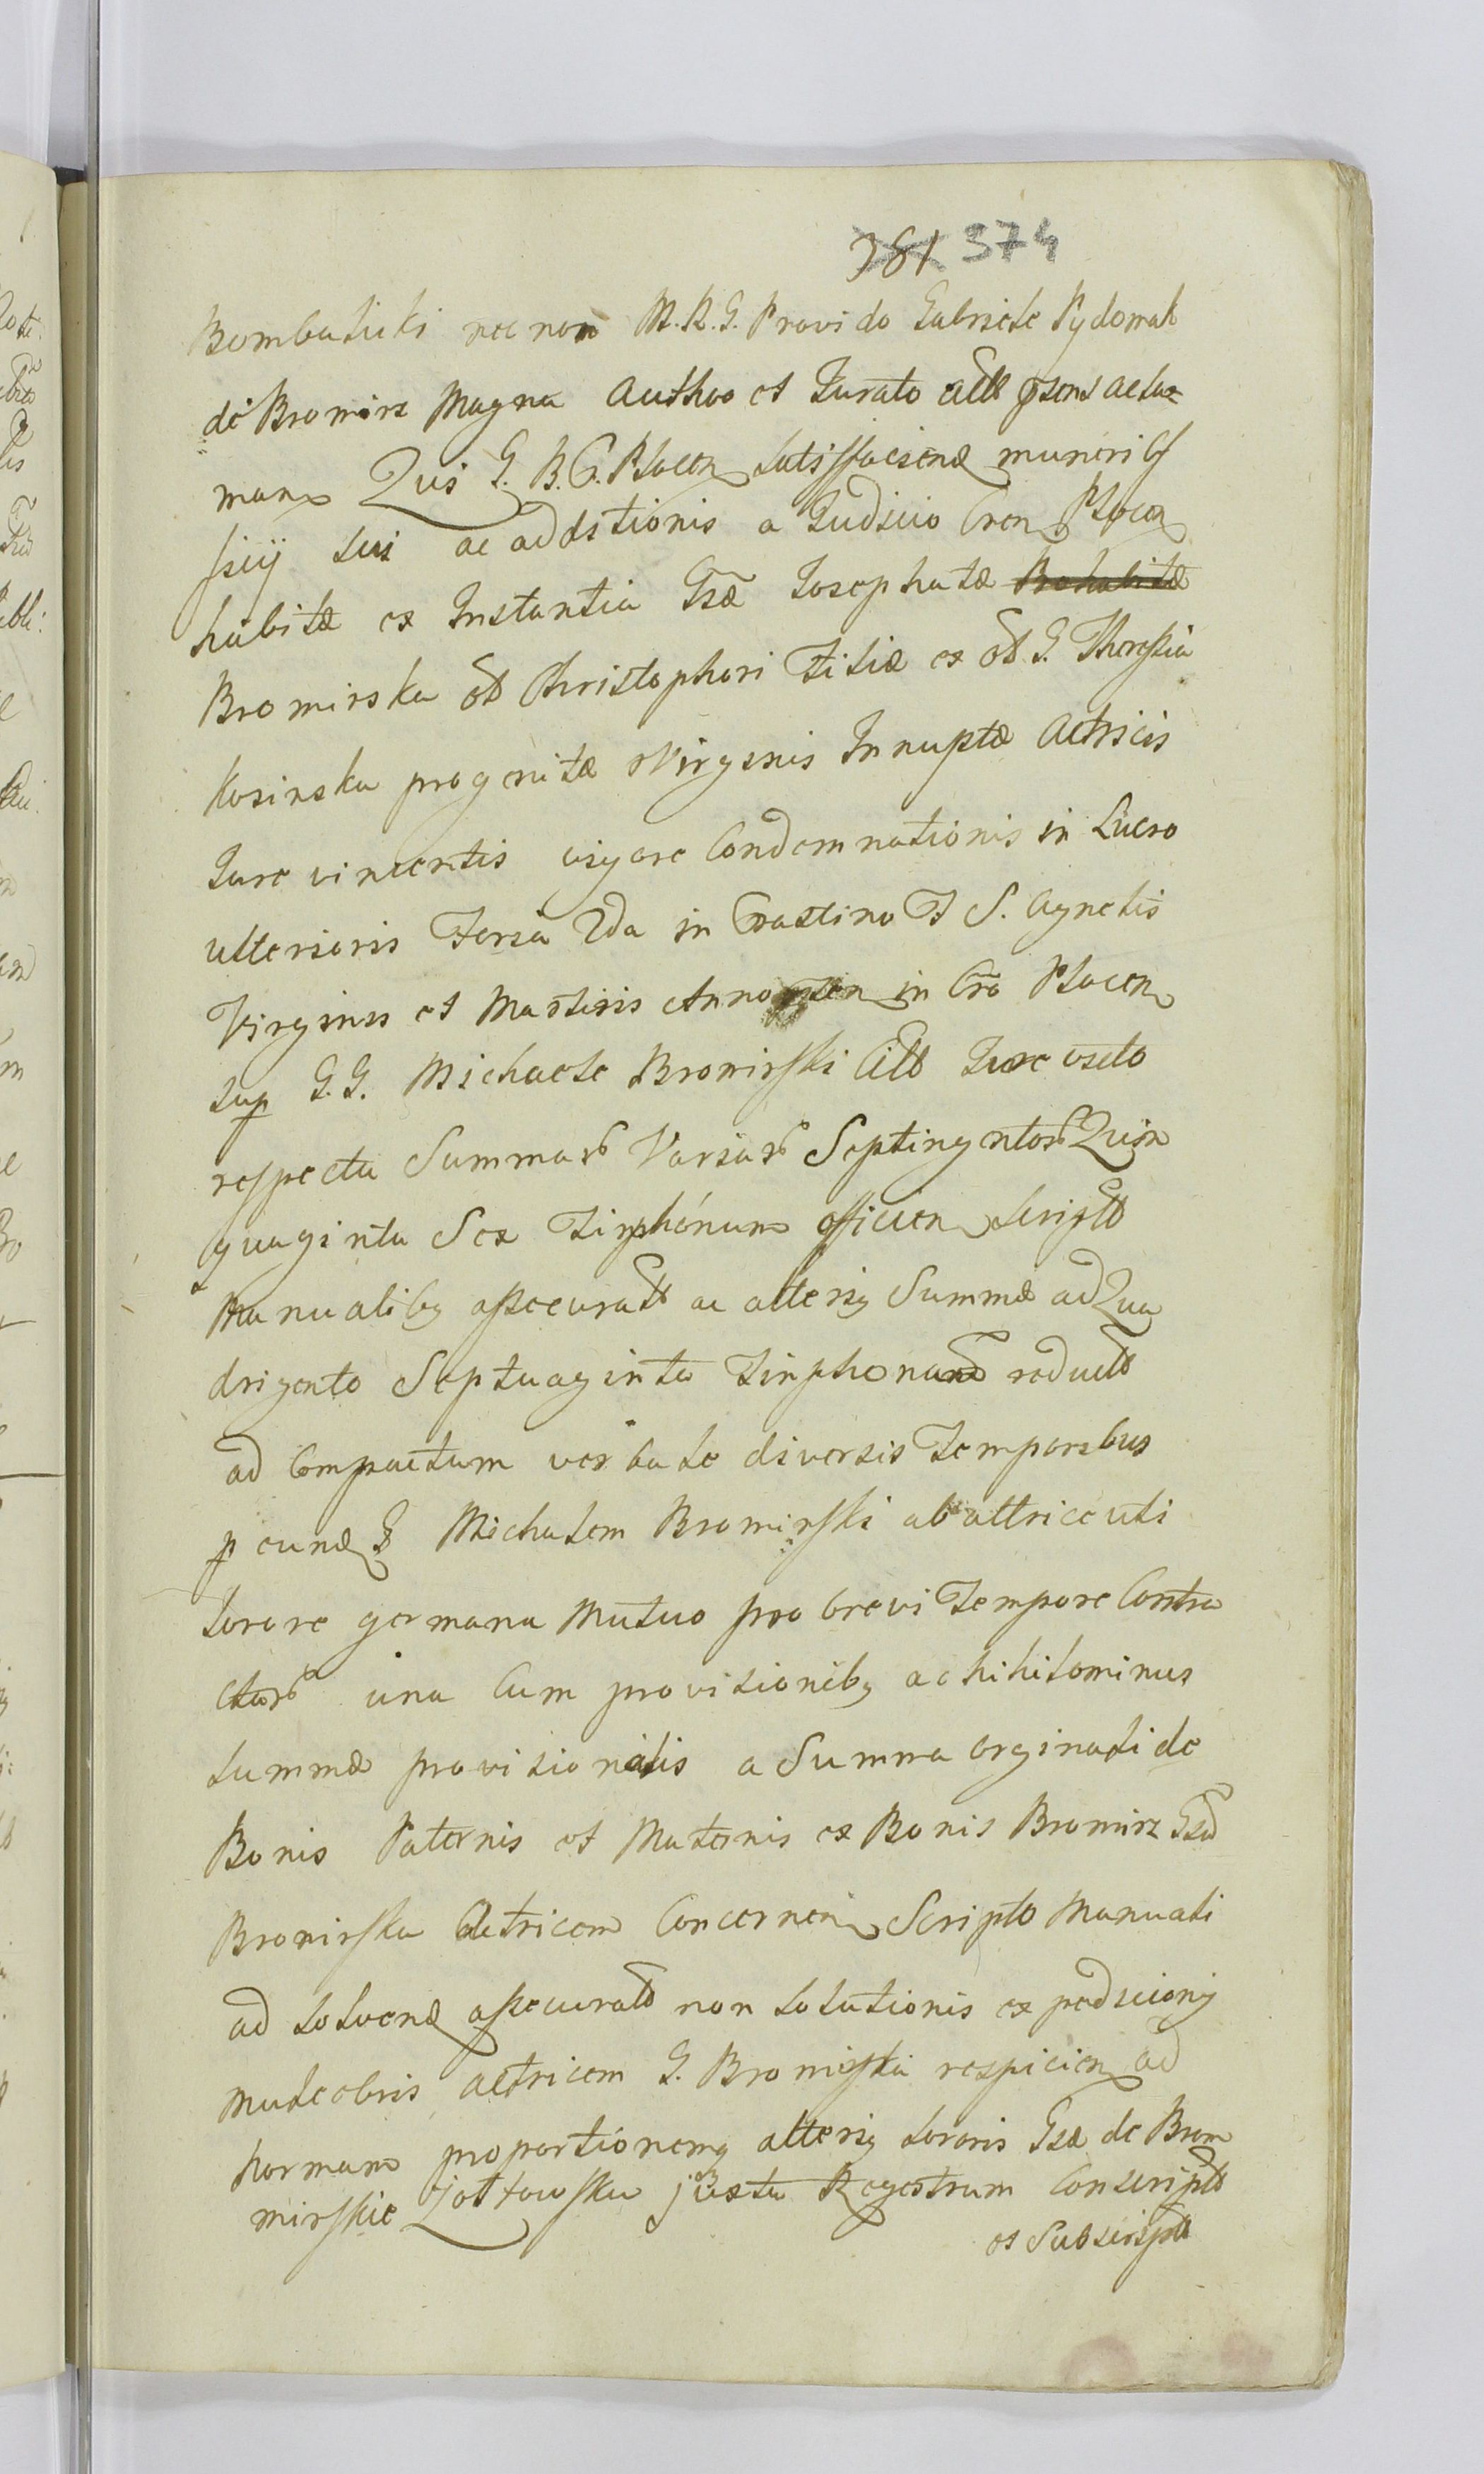 381 374
Bombaliki nec non M. R. G. Provido Gabriele Pydomak
de Bromirz Magna Authoo et Jurato alt psens actua
manx Qui G. R. C. Plocen satisfaciend muneri Of
ficij sui ac additionis a Judicio Cren Plocen
habitæ ex Instantia Gsæ Josephatæ Brohabitæ
Bromirska ol Christophori Filiæ ex ol G. Theressia
Kosinska progenitæ Virginis Innuptæ Actricis
Jure vincentis vigore Condemnationis in Lucro
ulterioris Feria 2da in Crastino F S. Agnetis
Virginis et Martiris Anno in Cro Plocen
sup G. G. Michaele Bromirski Citto Jure victo
respectu Summar Variar Septingntor Quin
quaginta Sex Tinphonum efficien Script
Manualibg assecurat ac alterig Summæ ad Qua
drigento Septuaginta Tinphonum reduct
ad Compactum verbale diversis Temporibus
p eund G Michalem Bromirski ab attrice uti
Sorore germana Mutuo pro brevi Tempore Contra
ctar una Cum provisionibg ac hihilominus
summæ provisionalis a Summa orginali de
Bonis Paternis et Maternis ex Bonis Bromirz Gsa
Bromirska Actricem Concernen Scripto Manuali
ad Solvend assecurat non Solutionis ex prædicionig
muleobris actricem G. Bromirska respicien ad
normam proportionemg alterig Sororis Gsæ de Brom
mirskie Zottowska juxta Regestrum Conscript
et Subscript